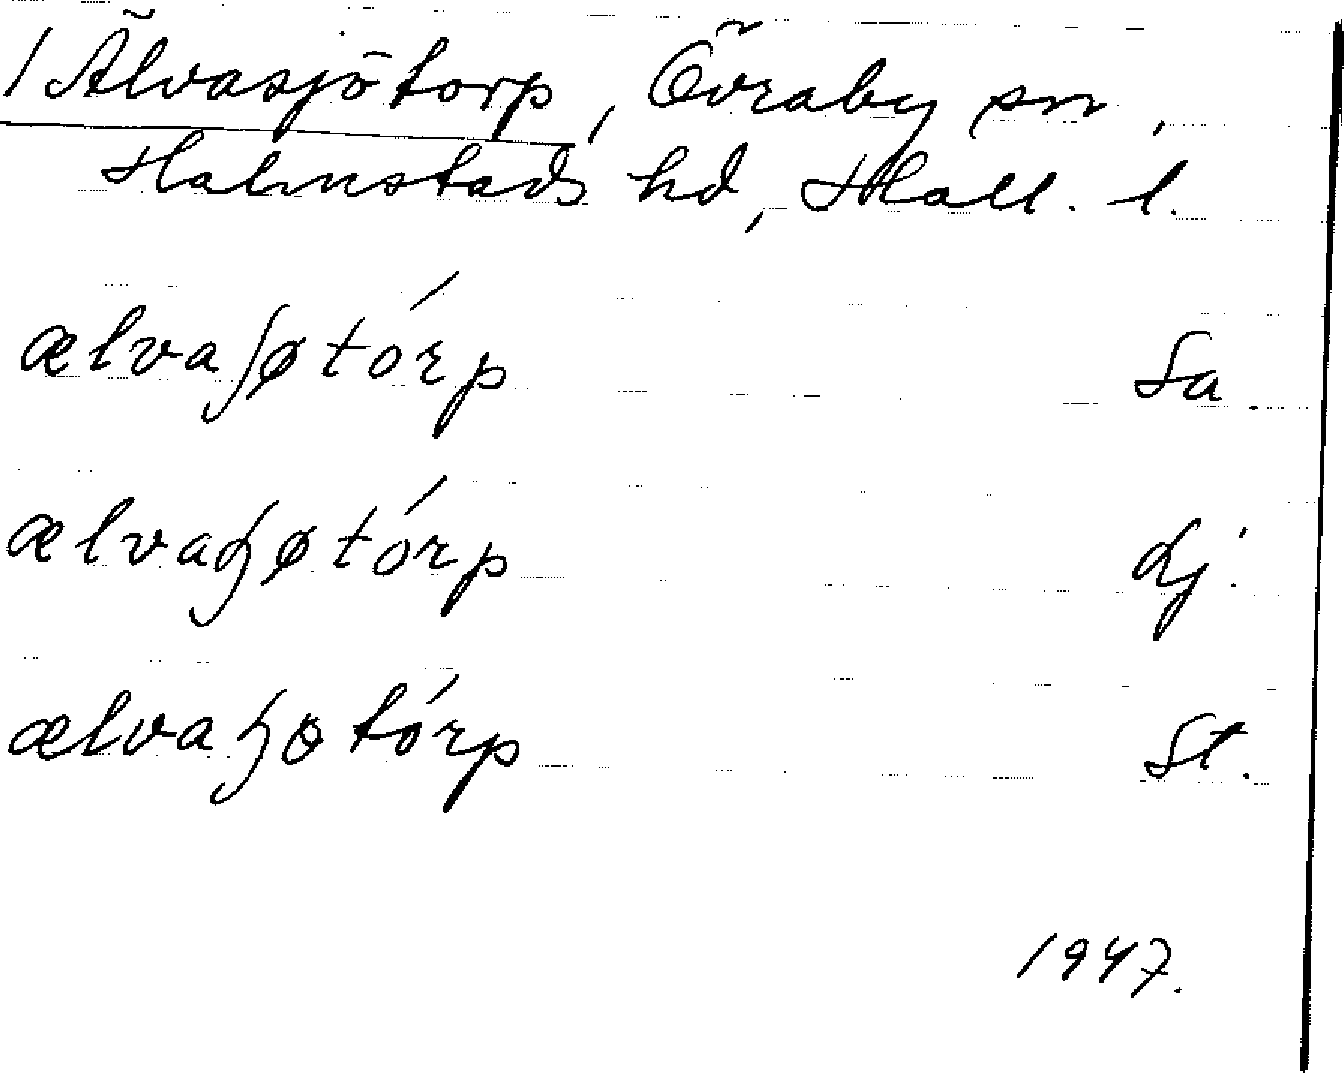 / Älvasjötorp, Övraby sn,
Halmstads hd, Hall. l.
ælvaʃøtórp Sa
ælvaɧøtórp Lj.
ælvaɧɵtórp St.
1947.